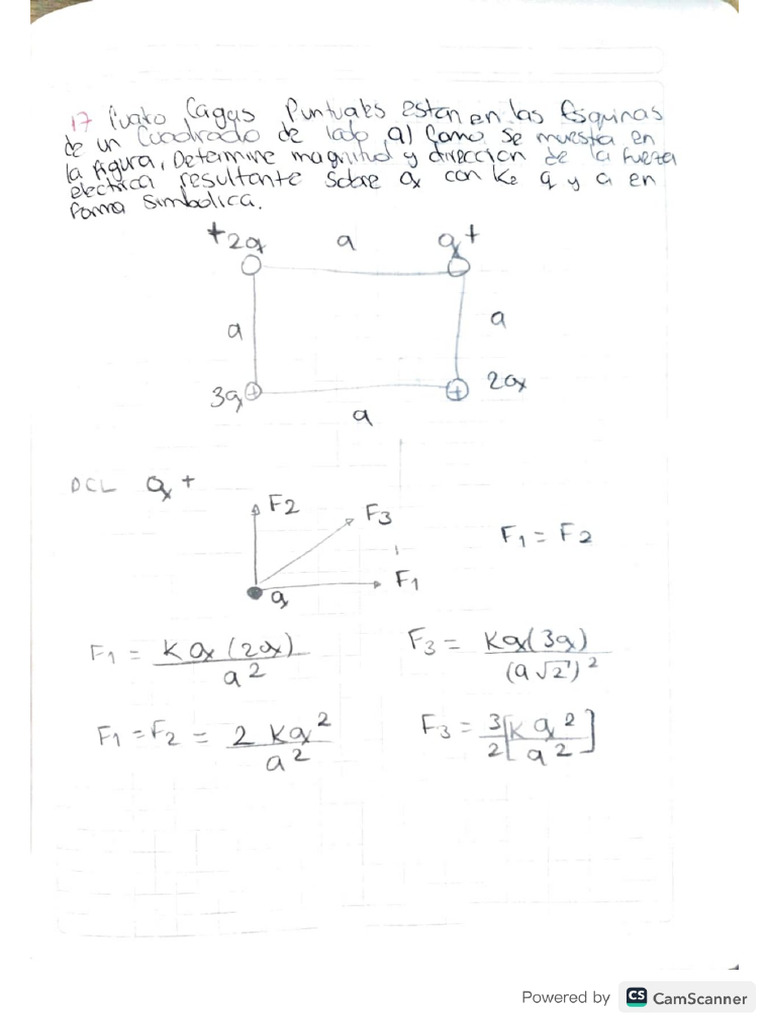 17 Cuatro Cagas Puntuales estan en las Esquinas
de un Cuadrado de lado a) Como Se muestra en
la figura, Determine magnitud y direccion de la fuerza
electrica resultante Sobre q con Ke q y a en
forma Simbolica.
+2q a q+
a a
3q + + 2q
a
DCL q+
F2
F3
F1 = F2
F1
q
F1 = Kq(2q)/a² F3 = Kq(3q)/(a√2)²
F1 = F2 = 2 Kq²/a² F3 = 3/2 [K q²/a²]
Powered by CS CamScanner